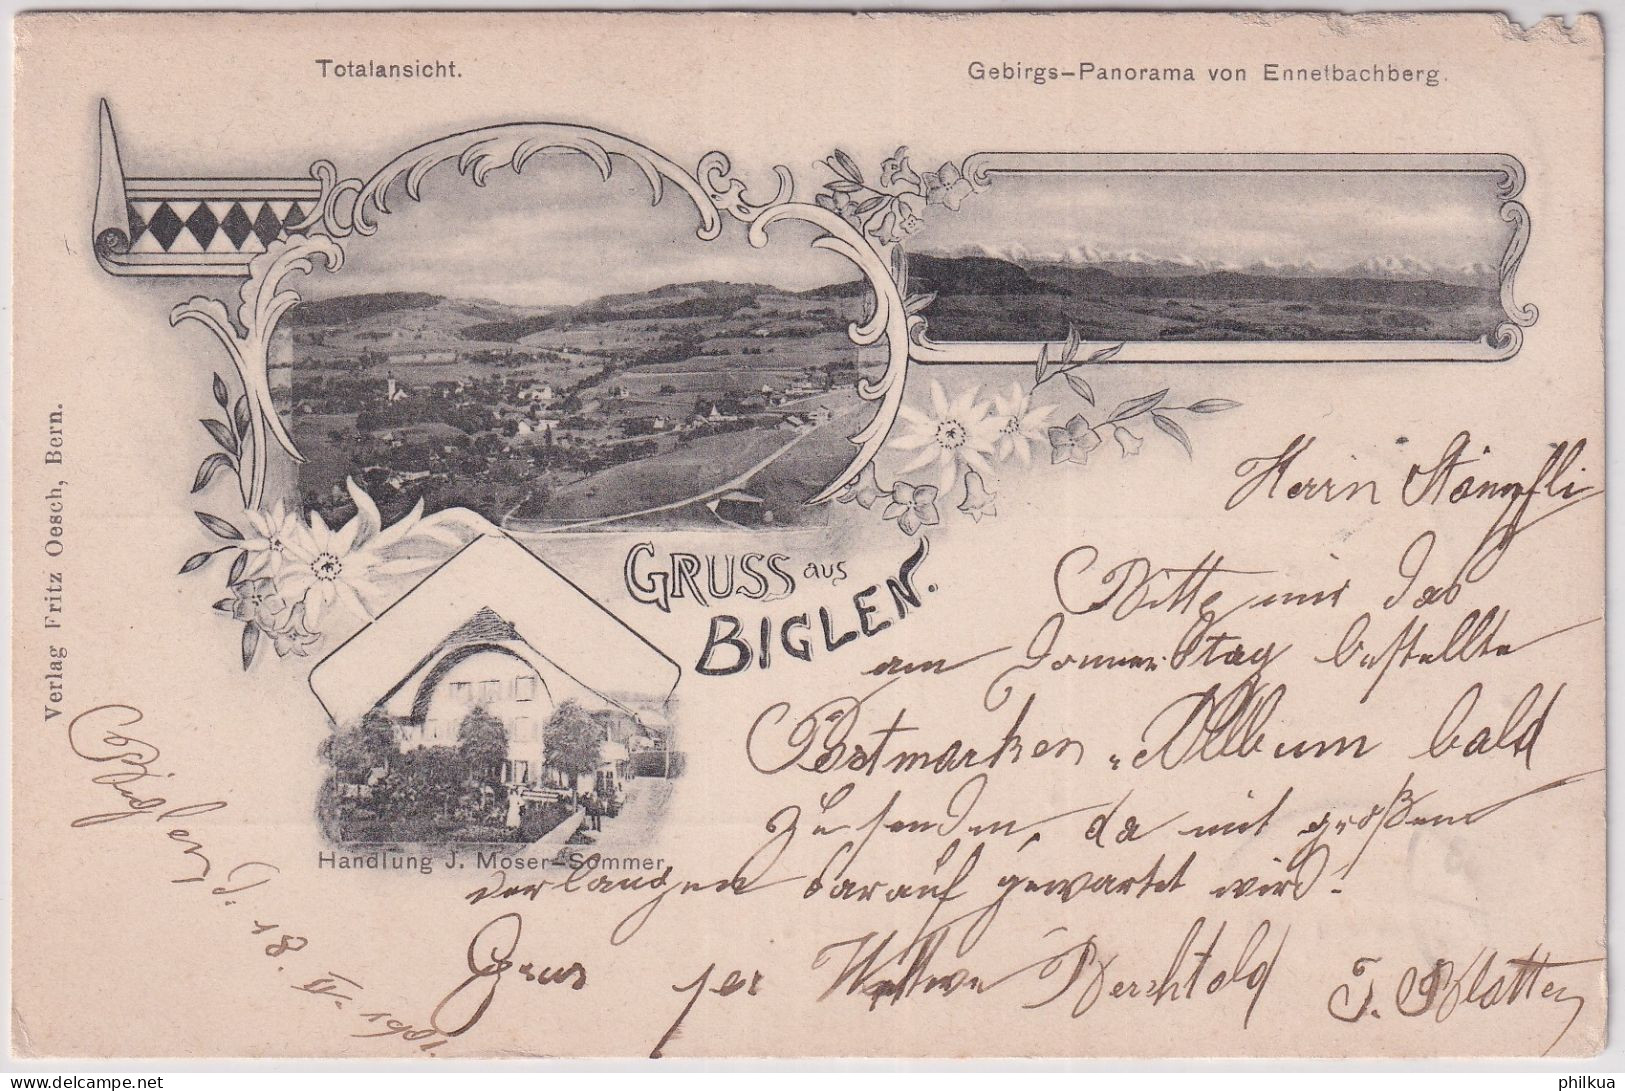 Totalansicht.
Gebirgs-Panorama von Ennetbachberg.
Verlag Fritz Oesch, Bern.
GRUSS aus
BIGLEN.
Handlung J. Moser-Sommer
Herrn Stämpfli
Bitte mir das
am Donnerstag bestellte
Postmarken-Album bald
zu senden, da mit großem
verlangen darauf gewartet wird!
Grus per Wittwe Berchtold
Biglen d. 18. IV. 1901.